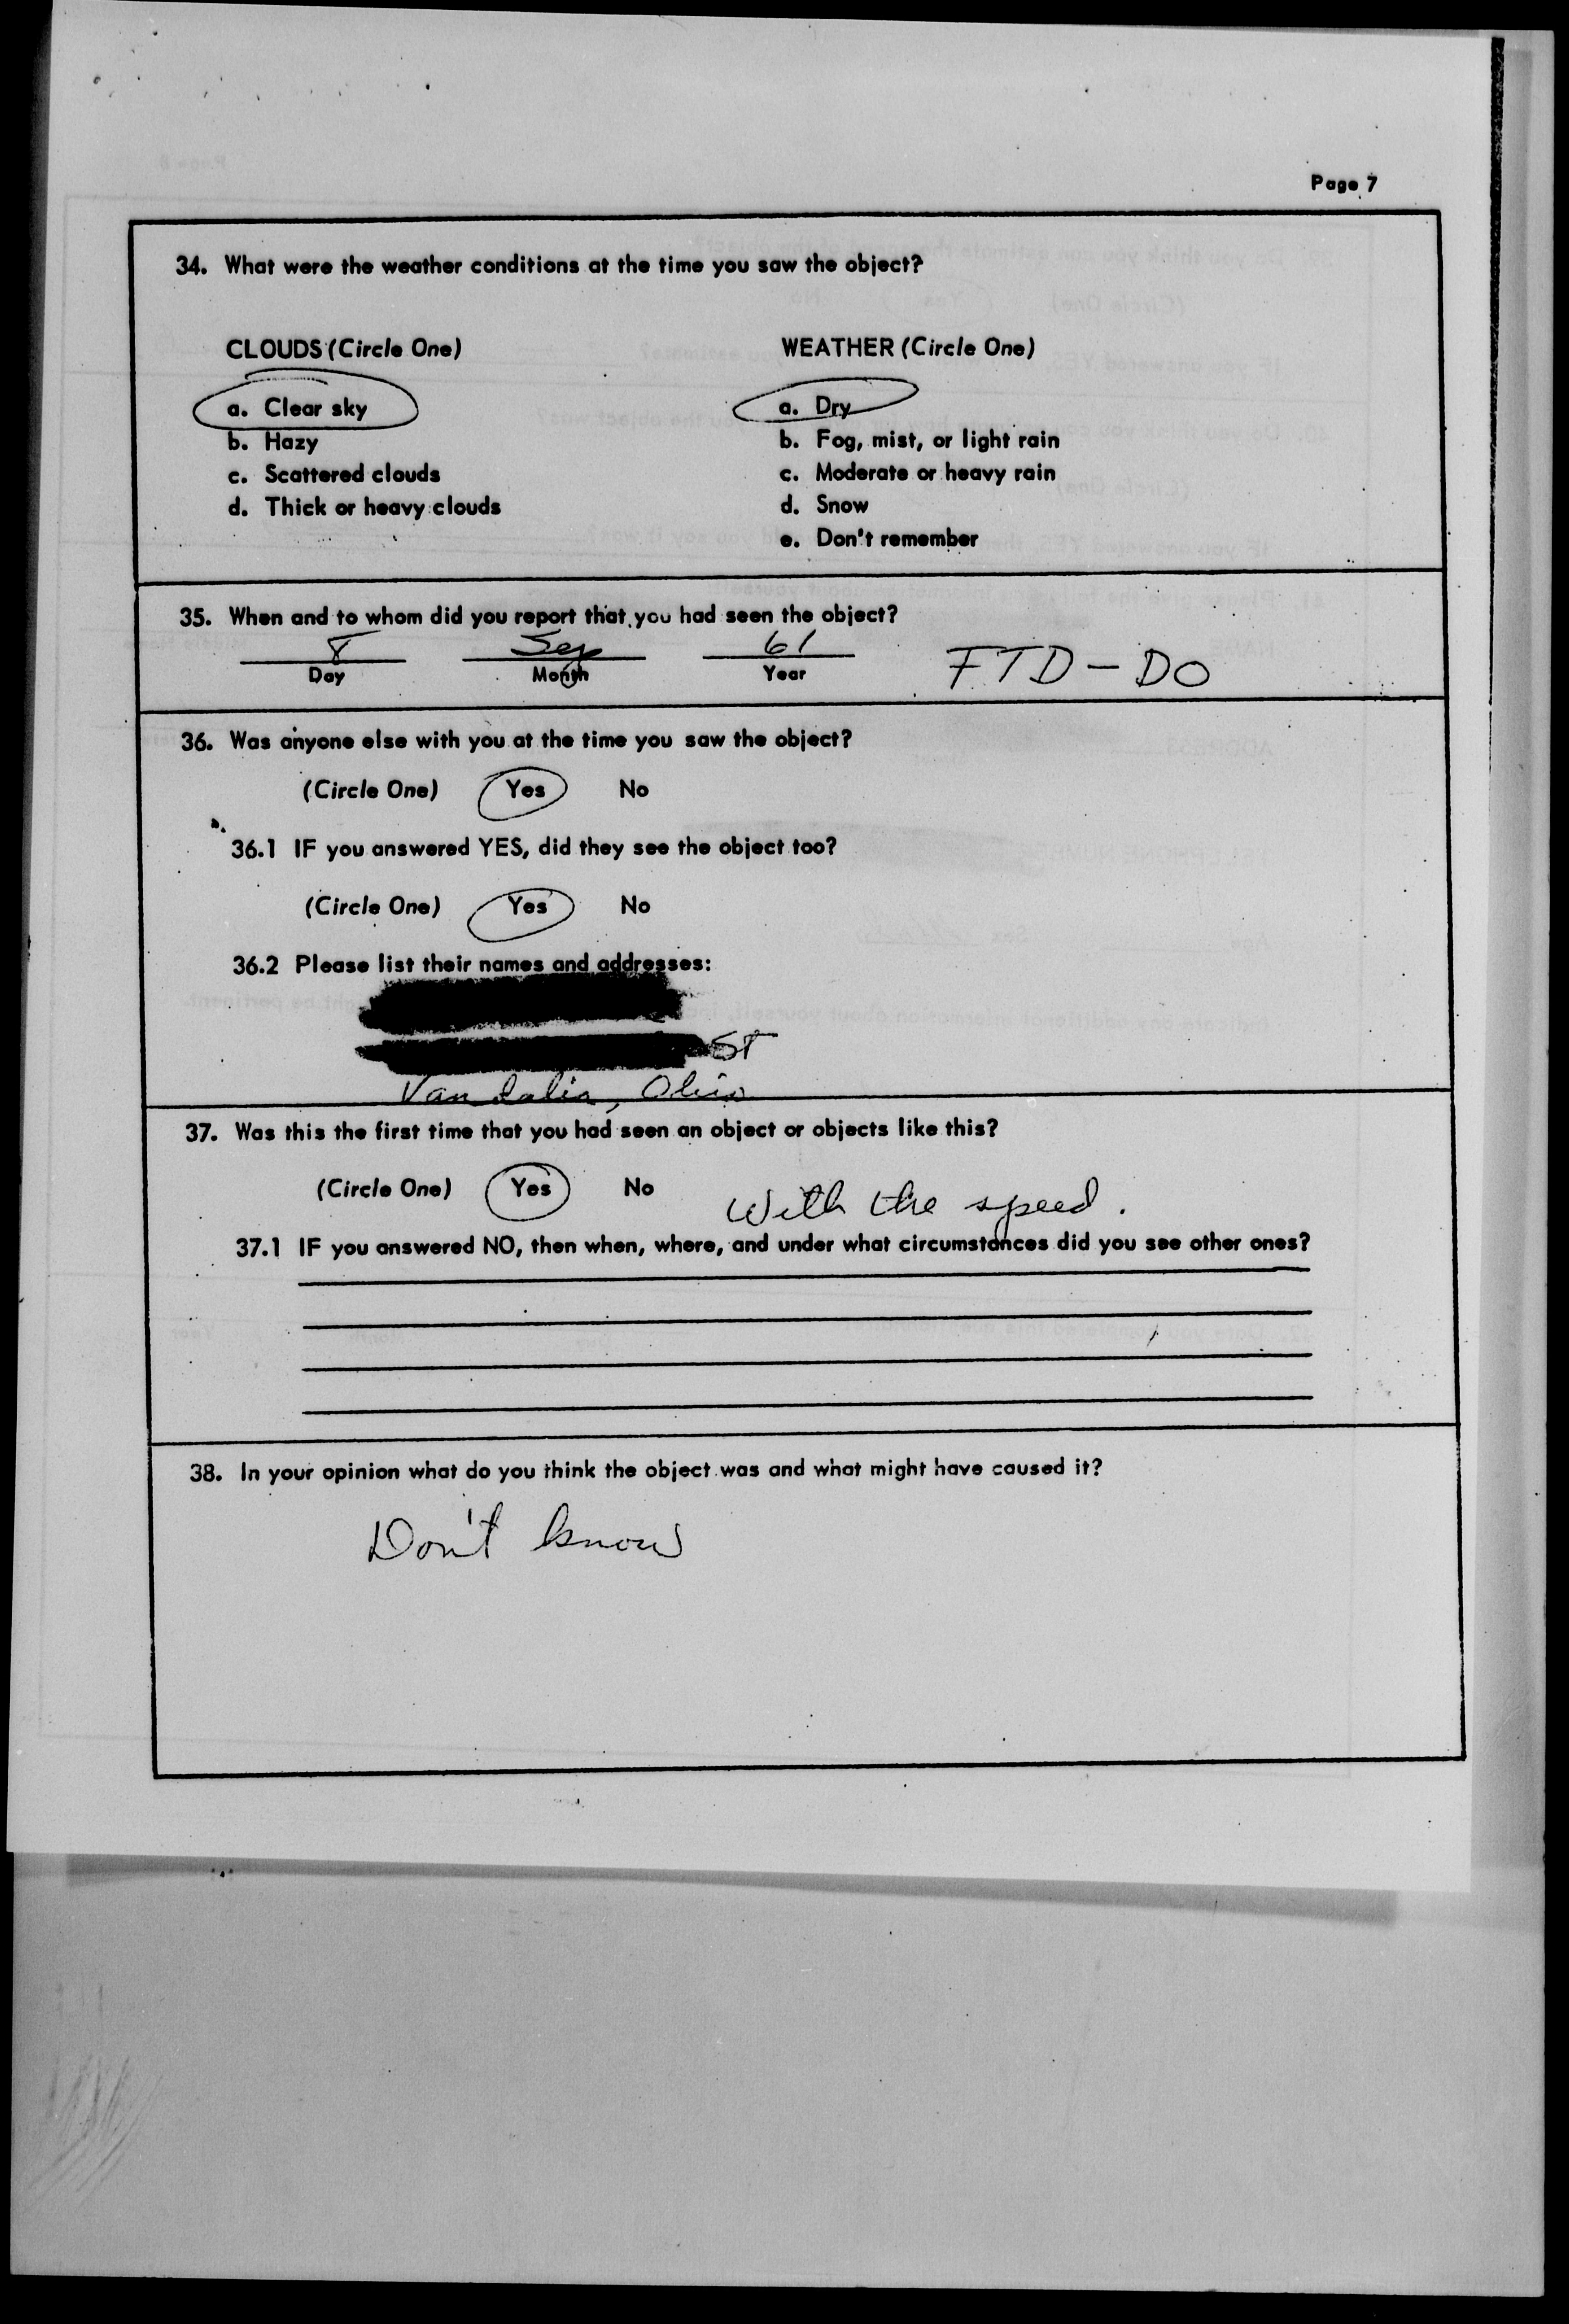 Page 7
34. What were the weather conditions at the time you saw the object?
CLOUDS (Circle One)
a. Clear sky
b. Hazy
c. Scattered clouds
d. Thick or heavy clouds
WEATHER (Circle One)
a. Dry
b. Fog, mist, or light rain
c. Moderate or heavy rain
d. Snow
e. Don't remember
35. When and to whom did you report that you had seen the object?
8 Sep 61 FTD-DO
Day Month Year
36. Was anyone else with you at the time you saw the object?
(Circle One) Yes No
36.1 IF you answered YES, did they see the object too?
(Circle One) Yes No
36.2 Please list their names and addresses:
ST
Vandalia, Ohio
37. Was this the first time that you had seen an object or objects like this?
(Circle One) Yes No With the speed.
37.1 IF you answered NO, then when, where, and under what circumstances did you see other ones?
38. In your opinion what do you think the object was and what might have caused it?
Don't know